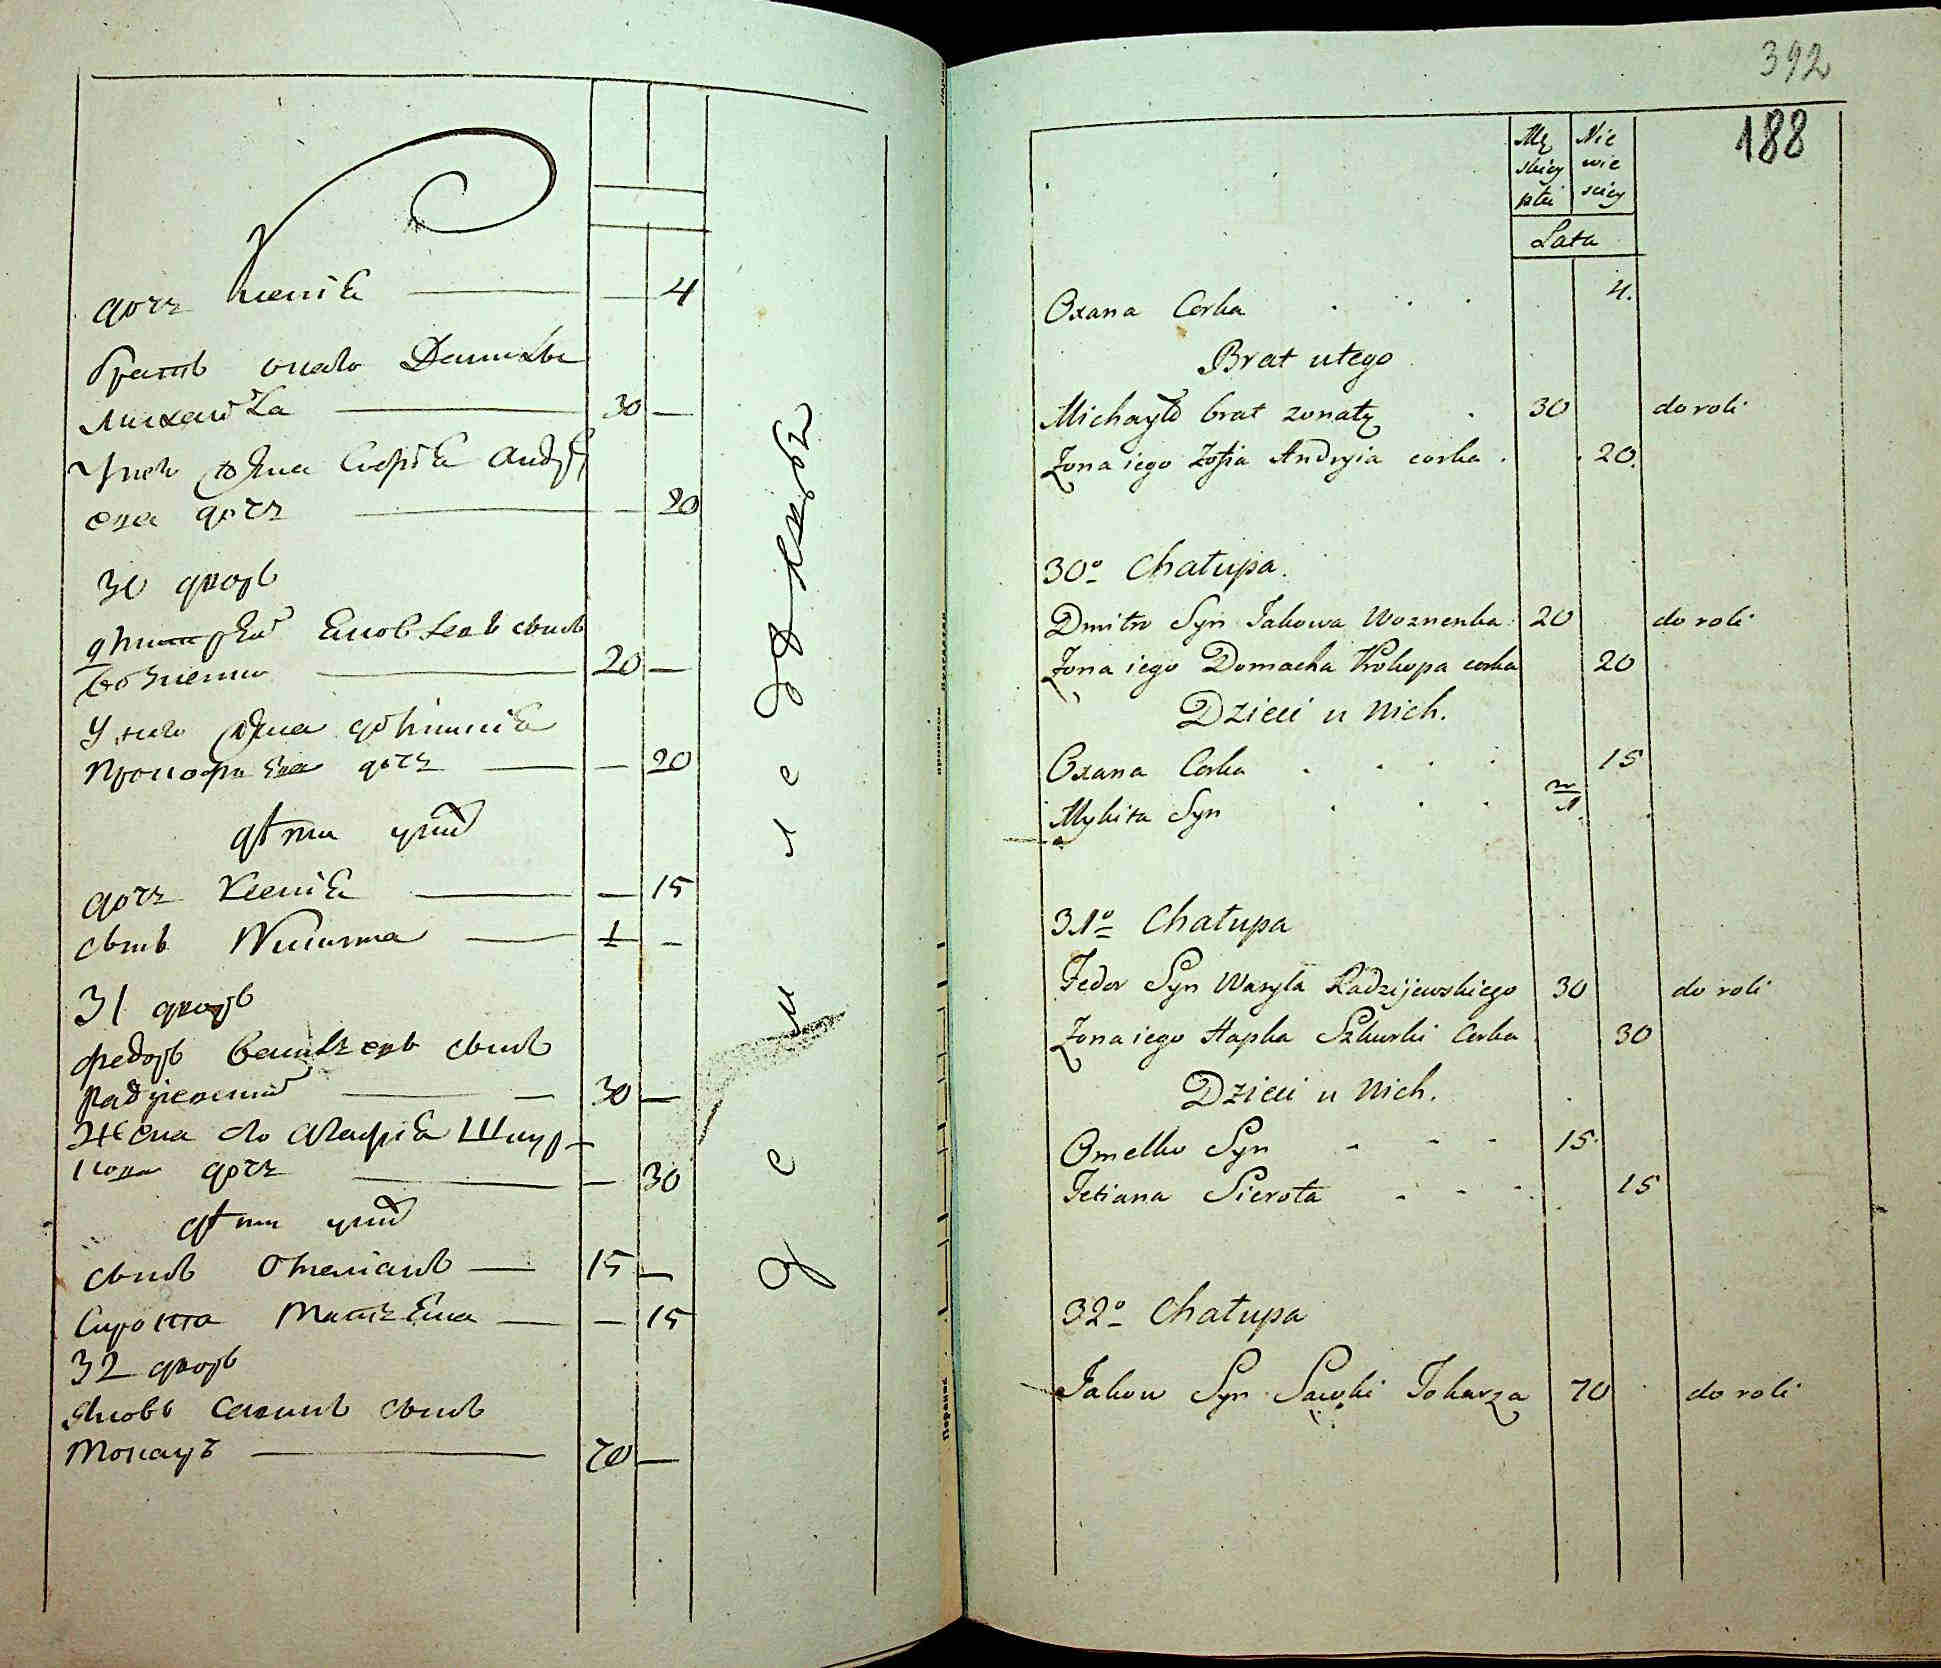 дочь Ксенія — — 4
братъ онаго Данилы
Михайла — 30 —
У него жена Софія Андрѣ
ева дочь — — 20
30 дворъ
Дмитрей Яковлевъ сынъ
Возненко — 20 —
У него жена Домникія
Прокофьева дочь — — 20
дѣти у них
дочь Ксенія — — 15
сынъ Никита — 1 —
31 дворъ
Федоръ Васильевъ сынъ
Радзіевский — 30 —
Жена его Агафія Шкур-
кова дочь — — 30
дѣти у них
сынъ Омеліанъ — 15 —
Сирота Татьяна — — 15
32 дворъ
Яковъ Савинъ сынъ
Токаръ — 70 —
392
188
Mę Nie
skiey wie
płci sciey
Lata
Oxana Corka 4.
Brat u tego
Michayło brat zonaty 30 do roli
Zona iego Zofia Andryia corka 20.
30o Chałupa.
Dmitro Syn Jakowa Woznenka 20 do roli
Zona iego Domacha Prokopa corka 20
Dzieci u Nich.
Oxana Corka 15
Mykita Syn 1.
31o Chałupa
Fedor Syn Wasyla Radzijewskiego 30 do roli
Zona iego Hapka Szkurki Corka 30
Dzieci u Nich.
Omelko Syn 15.
Tetiana Sierota 15
32o Chałupa
Jakow Syn Sawki Tokarza 70 do roli